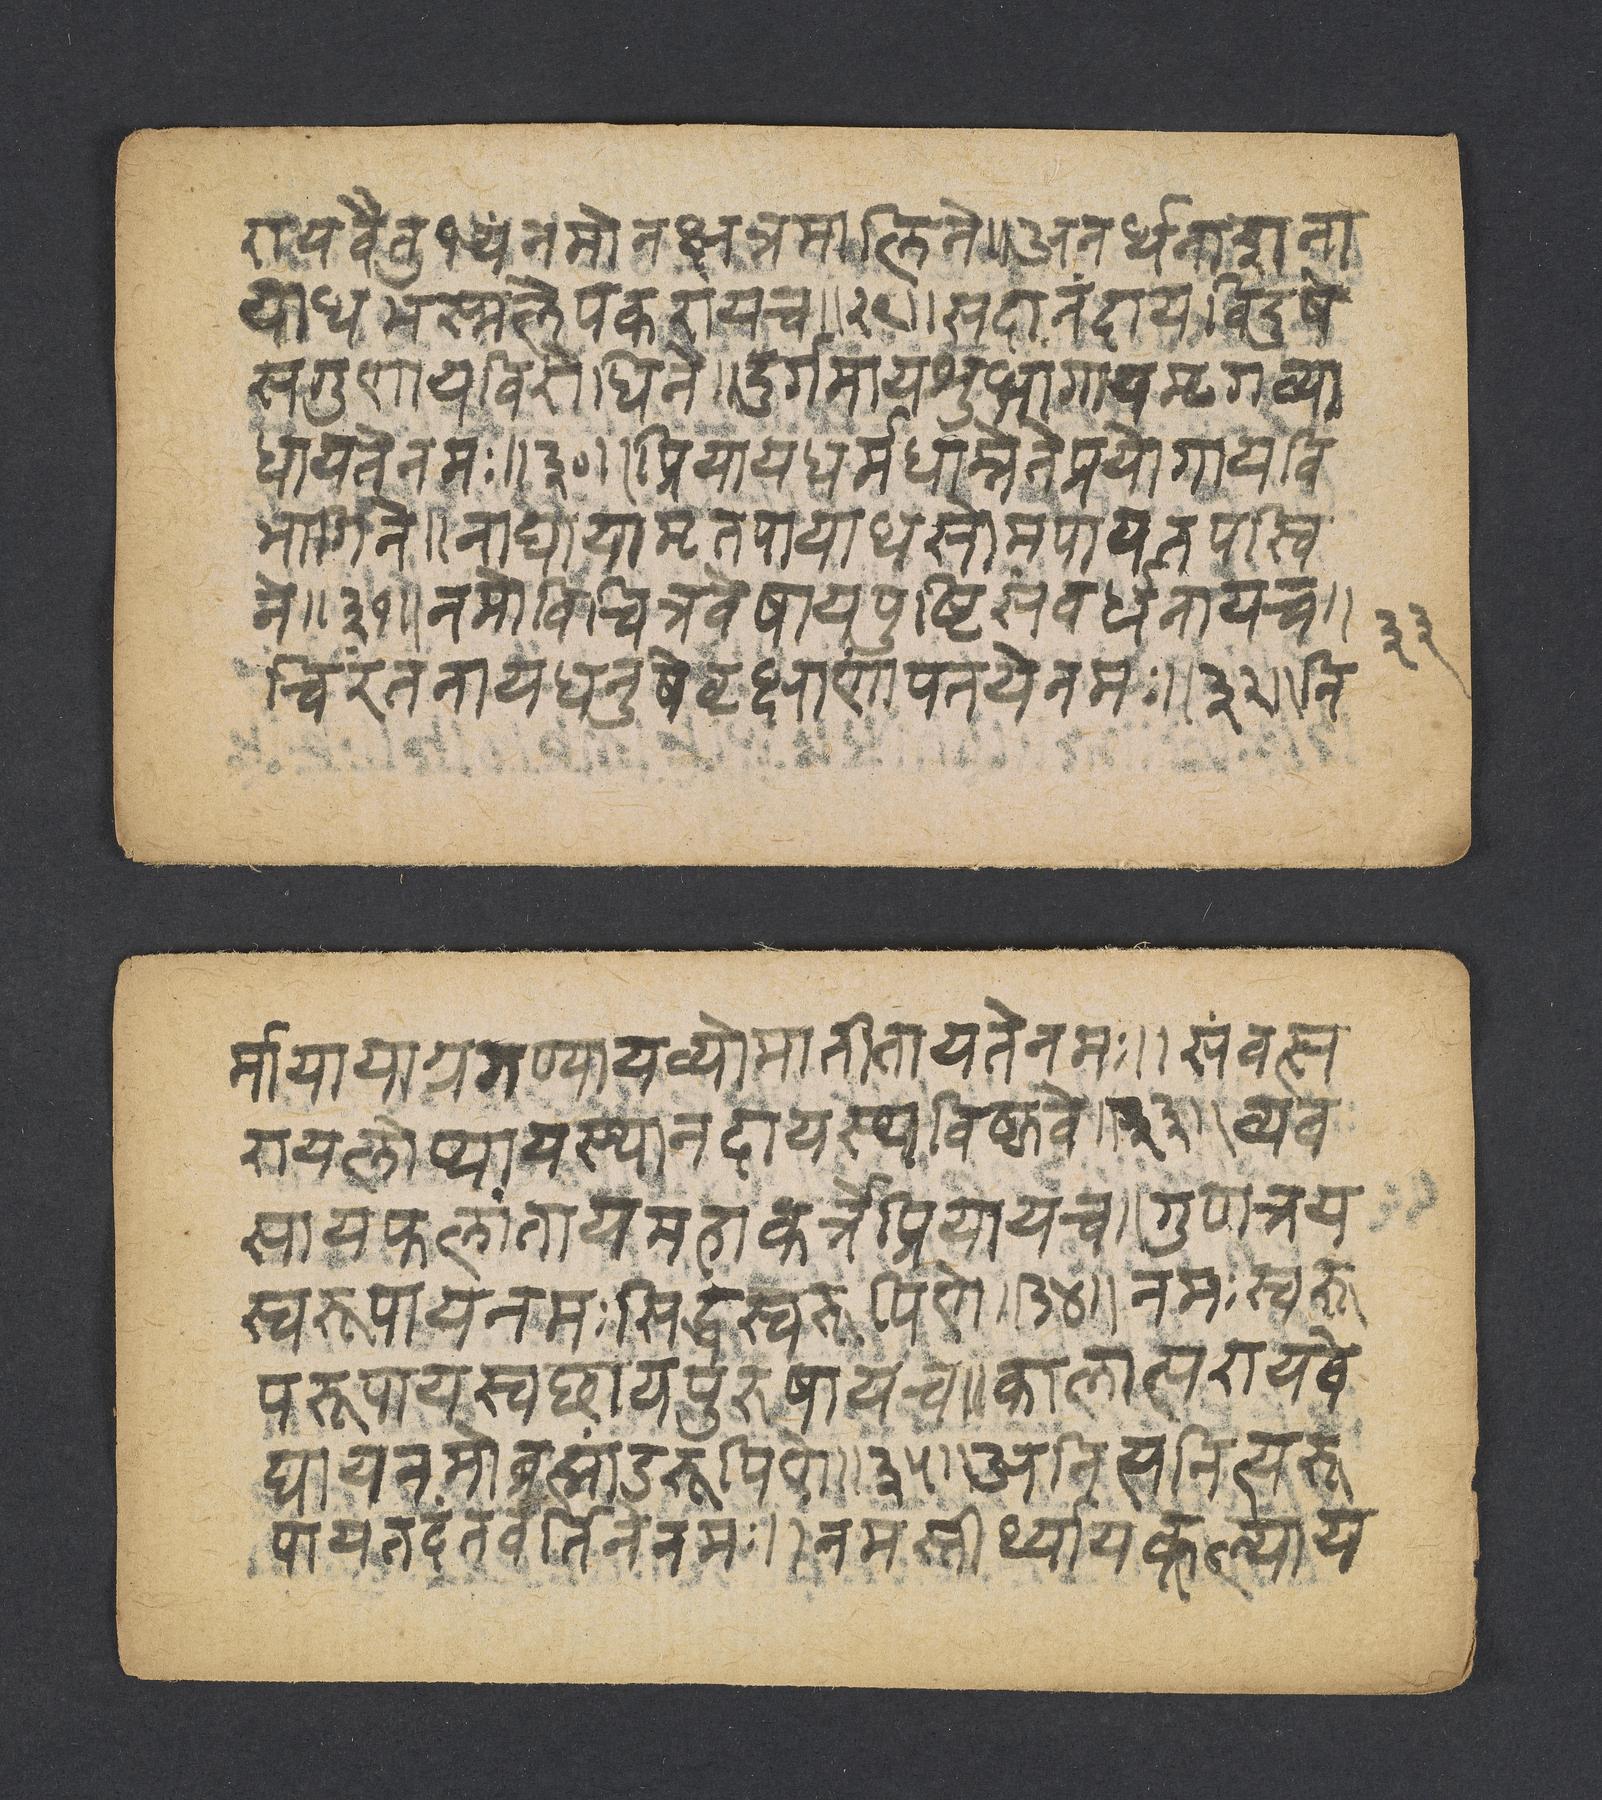 रायवैतुभ्यंनमोनक्षत्रमालिने॥अनर्थनाशना
याथभस्मलेपकरायच॥२९॥सदानंदायविदुषे
सगुणायविरोधिने॥दुर्गमायशुभ्रांगायमृगव्या
धायतेनमः॥३०॥प्रियायधर्मधाम्नेतेप्रयोगायवि
भागिने॥नाद्यायामृतपायाथसोमपायतपस्वि
ने॥३१॥नमोविचित्रवेषायपुष्टिसंवर्धनायच॥
चिरंतनायधनुषेवृक्षाणांपतयेनमः॥३२॥नि
३३
र्मायायाग्रगण्यायव्योमातीतायतेनमः॥संवत्स
रायलोप्यायस्थानदायस्थविष्णवे॥३३॥व्यव
सायफलांतायमहाकर्त्रेप्रियायच॥गुणत्रय
स्वरूपायनमःसिद्धस्वरूपिणे॥३४॥नमःस्वरू
परूपायस्वछायपुरुषायच॥कालात्परायवे
द्यायनमोब्रह्मांडरूपिणे॥३५॥अनित्यनित्यरू
पायतदंतवर्तिनेनमः॥नमस्तीर्थ्यायकूल्याय